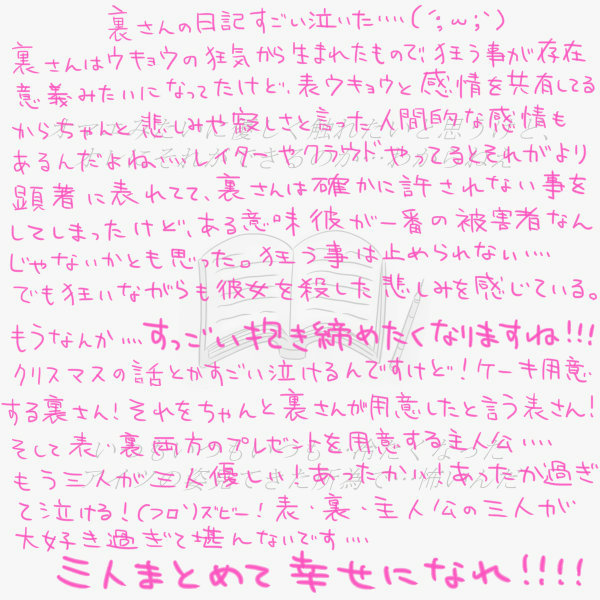 裏さんの日記すごい泣いた‥‥(´;ω;`)
裏さんはウキョウの狂気から生まれたもので、狂う事が存在
意義みたいになってたけど、表ウキョウと感情を共有してる
からちゃんと悲しみや寂しさと言った人間的な感情も
あるんだよね‥‥レイターやクラウドやってるとそれがより
顕著に表れてて、裏さんは確かに許されない事を
してしまったけど、ある意味彼が一番の被害者なん
じゃないかとも思った。狂う事は止められない‥‥
でも狂いながらも彼女を殺した悲しみを感じている。
もうなんか‥‥すっごい抱き締めたくなりますね!!!
クリスマスの話とかすごい泣けるんですけど!ケーキ用意
する裏さん!それをちゃんと裏さんが用意したと言う表さん!
そして表い裏両方のプレゼントを用意する主人公‥‥
もう三人が三人優しいしあったかいしあったか過ぎ
て泣ける!(つロ`)ズビー!表・裏・主人公の三人が
大好き過ぎて堪んないです‥‥
三人まとめて幸せになれ!!!!